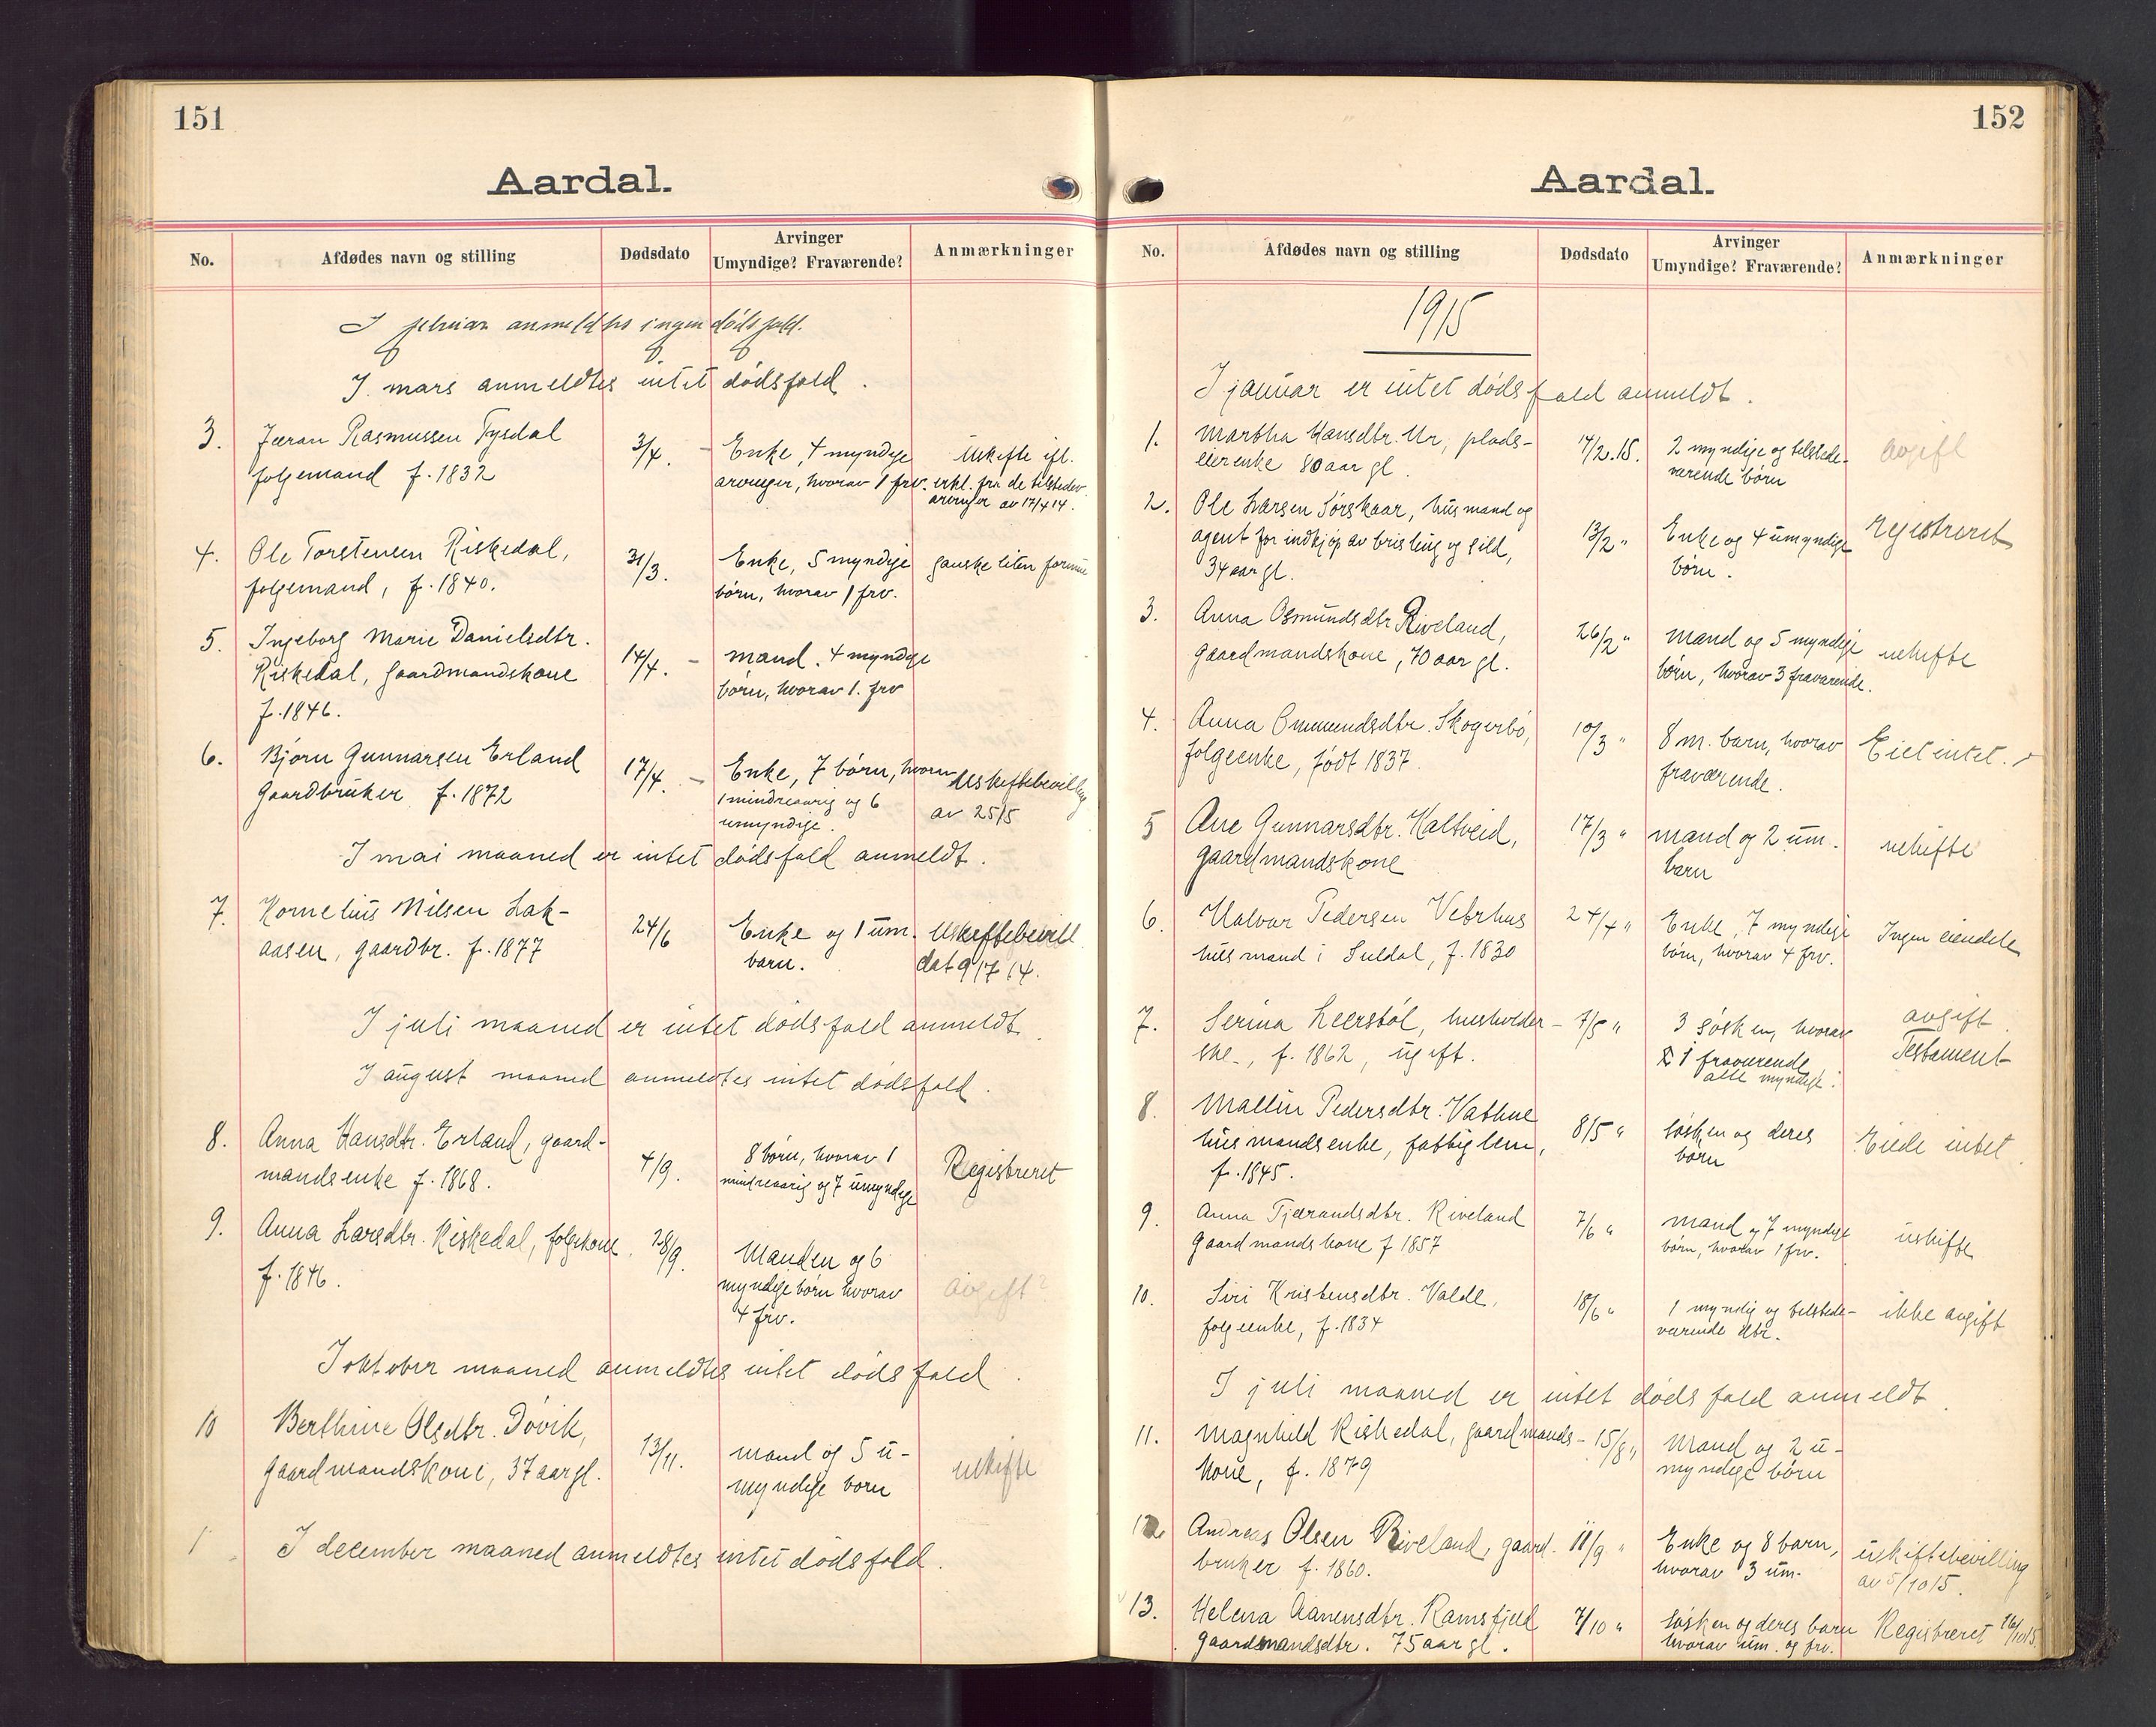 151
Aardal.
No.
Afdødes navn og stilling
Dødsdato
Arvinger
Umyndige? Fraværende?
Anmærkninger
I februar anmeldtes ingen dødsfald.
I mars anmeldtes intet dødsfald.
3. Jæran Rasmussen Tysdal 3/4. - Enke, 4 myndige uskifte ifl.
folgemand f. 1832 arvinger, hvorav 1 frv. erkl. fra de tilstedev.
arvinger av 17/4 14.
4. Ole Torstensen Riskedal, 31/3. Enke, 5 myndige ganske liten formue
folgemand, f. 1840. børn, hvorav 1 frv.
5. Ingeborg Marie Danielsdtr. 14/4. - mand. 4 myndige
Riskedal, gaardmandskone børn, hvorav 1. frv
f. 1846.
6. Bjørn Gunnarsen Erland 17/4. - Enke, 7 børn, hvorav uskiftebevilling
Gaardbruker f. 1872 1 mindreaarig og 6 av 25/5
umyndige.
I mai maaned er intet dødsfald anmeldt.
7. Kornelius Nilsen Lak- 24/6 Enke og 1 um. Uskiftebevill.
aasen, gaardbr. f. 1877 barn. dat 9/7 14.
I juli maaned er intet dødsfald anmeldt.
I august maaned anmeldtes intet dødsfald.
8. Anna Hansdtr. Erland, gaard- 4/9. 8 børn, hvorav 1 Registreret
mandsenke f. 1868. mindreaarig og 7 umyndige
9. Anna Larsdtr. Riskedal, folgekone. 28/9. Manden og 6
f. 1846. myndige børn hvorav avgift?
4 frv.
I oktober maaned anmeldtes intet dødsfald.
10 Berthine Olsdtr. Døvik, 13/11. mand og 5 u-
gaardmandskone, 37 aar gl. myndige born uskifte
1 I december maaned anmeldtes intet dødsfald.
152
Aardal.
No.
Afdødes navn og stilling
Dødsdato
Arvinger
Umyndige? Fraværende?
Anmærkninger
1915
I januar er intet dødsfald anmeldt.
1. Martha Hansdtr. Ur, plads- 14/2.15. 2 myndige og tilstede- avgift
eierenke 80 aar gl. værende børn
2. Ole Larsen Sørskaar, husmand og 13/2 " Enke og 4 umyndige registreret
agent for indkjøp av brisling og sild, børn.
34 aar gl.
3. Anna Osmundsdtr. Riveland, 26/2 " mand og 5 myndige uskifte
gaardmandskone, 70 aar gl. børn, hvorav 3 fraværende.
4. Anna Ommundsdtr. Skogerbø, 10/3 " 8 m. barn, hvorav Eiet intet.
folgeenke, født 1837. fraværende.
5 Ane Gunnarsdtr. Kaltveid, 17/3 " mand og 2 um. uskifte
gaardmandskone barn
6. Halvor Pedersen Vetrhus 24/4 " Enke, 7 myndige Ingen eiendele
husmand i Suldal, f. 1830 børn, hvorav 4 frv.
7. Serina Leerstøl, husholder- 7/5 " 3 søsken, hvorav avgift.
ske, f. 1862, ugift. 1 fraværende Testament
alle myndige.
8. Mallin Pedersdtr. Vathne 8/5 " søsken og deres Eiede intet.
husmandsenke, fattiglem, børn
f. 1845.
9. Anna Tjærandsdtr. Riveland 7/6 " mand og 7 myndige uskifte
Gaardmandskone f 1857 børn, hvorav 1 frv.
10. Siri Kristensdtr. Valde, 18/6 " 1 myndig og tilstede- ikke avgift
folgeenke, f. 1834 værende dtr.
I juli maaned er intet dødsfald anmeldt.
11. Magnhild Riskedal, gaardmands- 15/8 " Mand og 2 u-
kone, f. 1879 myndige børn
12 Andreas Olsen Riveland, gaard- 11/9 " Enke og 8 barn, uskiftebevilling
bruker f. 1860. hvorav 3 um. av 5/10 15.
13. Helena Aanensdtr. Ramsfjeld 7/10 " søsken og deres barn Registreret 16/10 15.
gaardmandsdtr. 75 aar gl. hvorav um. og frv.